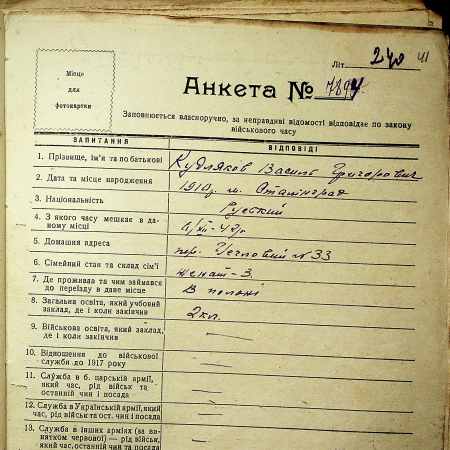 Літ. 240 41
Місце
для
фотокартки
Анкета № 7894
Заповнюється власноручно, за неправдиві відомості відповідає по закону
військового часу
ЗАПИТАННЯ ВІДПОВІДІ
1. Прізвище, ім'я та по батькові Кудляков Василь Григорович
2. Дата та місце народження 1910р. м. Сталінград
3. Національність Руский
4. З якого часу мешкає в даному місці 6/XII-42р.
5. Домашня адреса пер. №33
6. Сімейний стан та склад сім'ї женат-3
7. Де проживав та чим займався
до переїзду в дане місце В полоні
8. Загальна освіта, який учбовий
заклад, де і коли закінчив 2кл.
9. Військова освіта, який заклад,
де і коли закінчив —
10. Відношення до військової
служби до 1917 року —
11. Служба в б. царській армії,
який час, рід військ та
останній чин і посада —
12. Служба в Українській армії, який
час, рід військ та ост. чин і посада —
13. Служба в інших арміях (за ви-
нятком червоної) — рід військ,
який час, останній чин та посада —